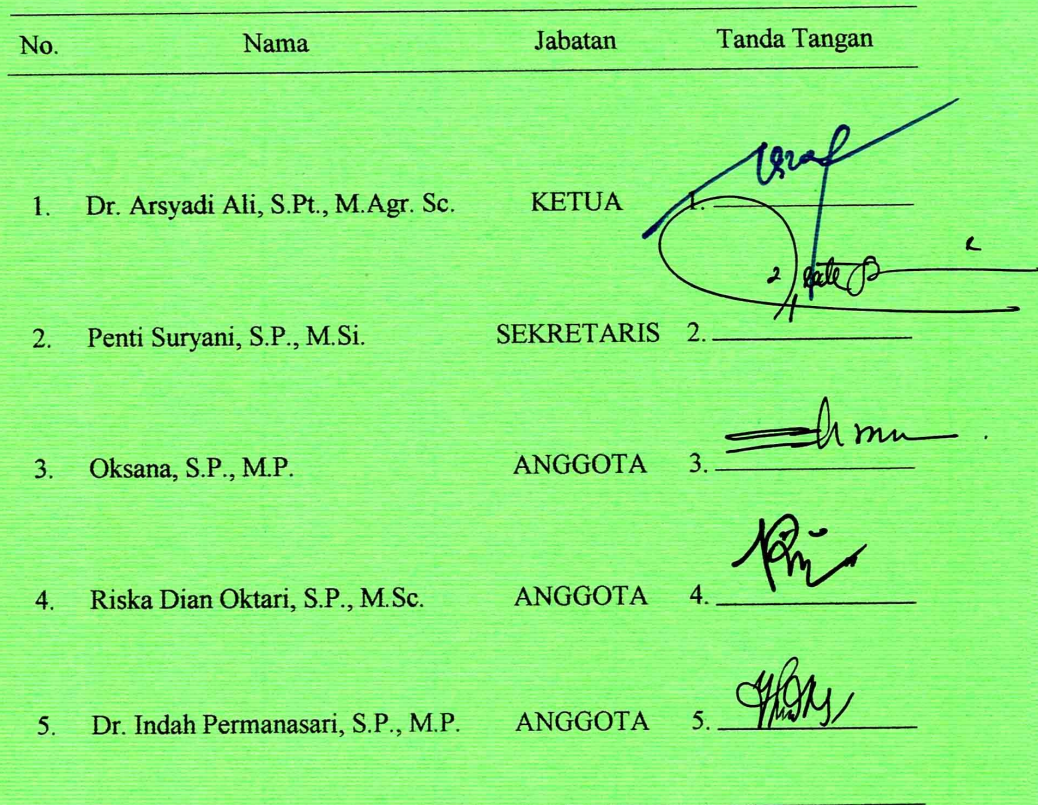 No. Nama Jabatan Tanda Tangan
1. Dr. Arsyadi Ali, S.Pt., M.Agr. Sc. KETUA 1.
2
2. Penti Suryani, S.P., M.Si. SEKRETARIS 2.
3. Oksana, S.P., M.P. ANGGOTA 3.
4. Riska Dian Oktari, S.P., M.Sc. ANGGOTA 4.
5. Dr. Indah Permanasari, S.P., M.P. ANGGOTA 5.